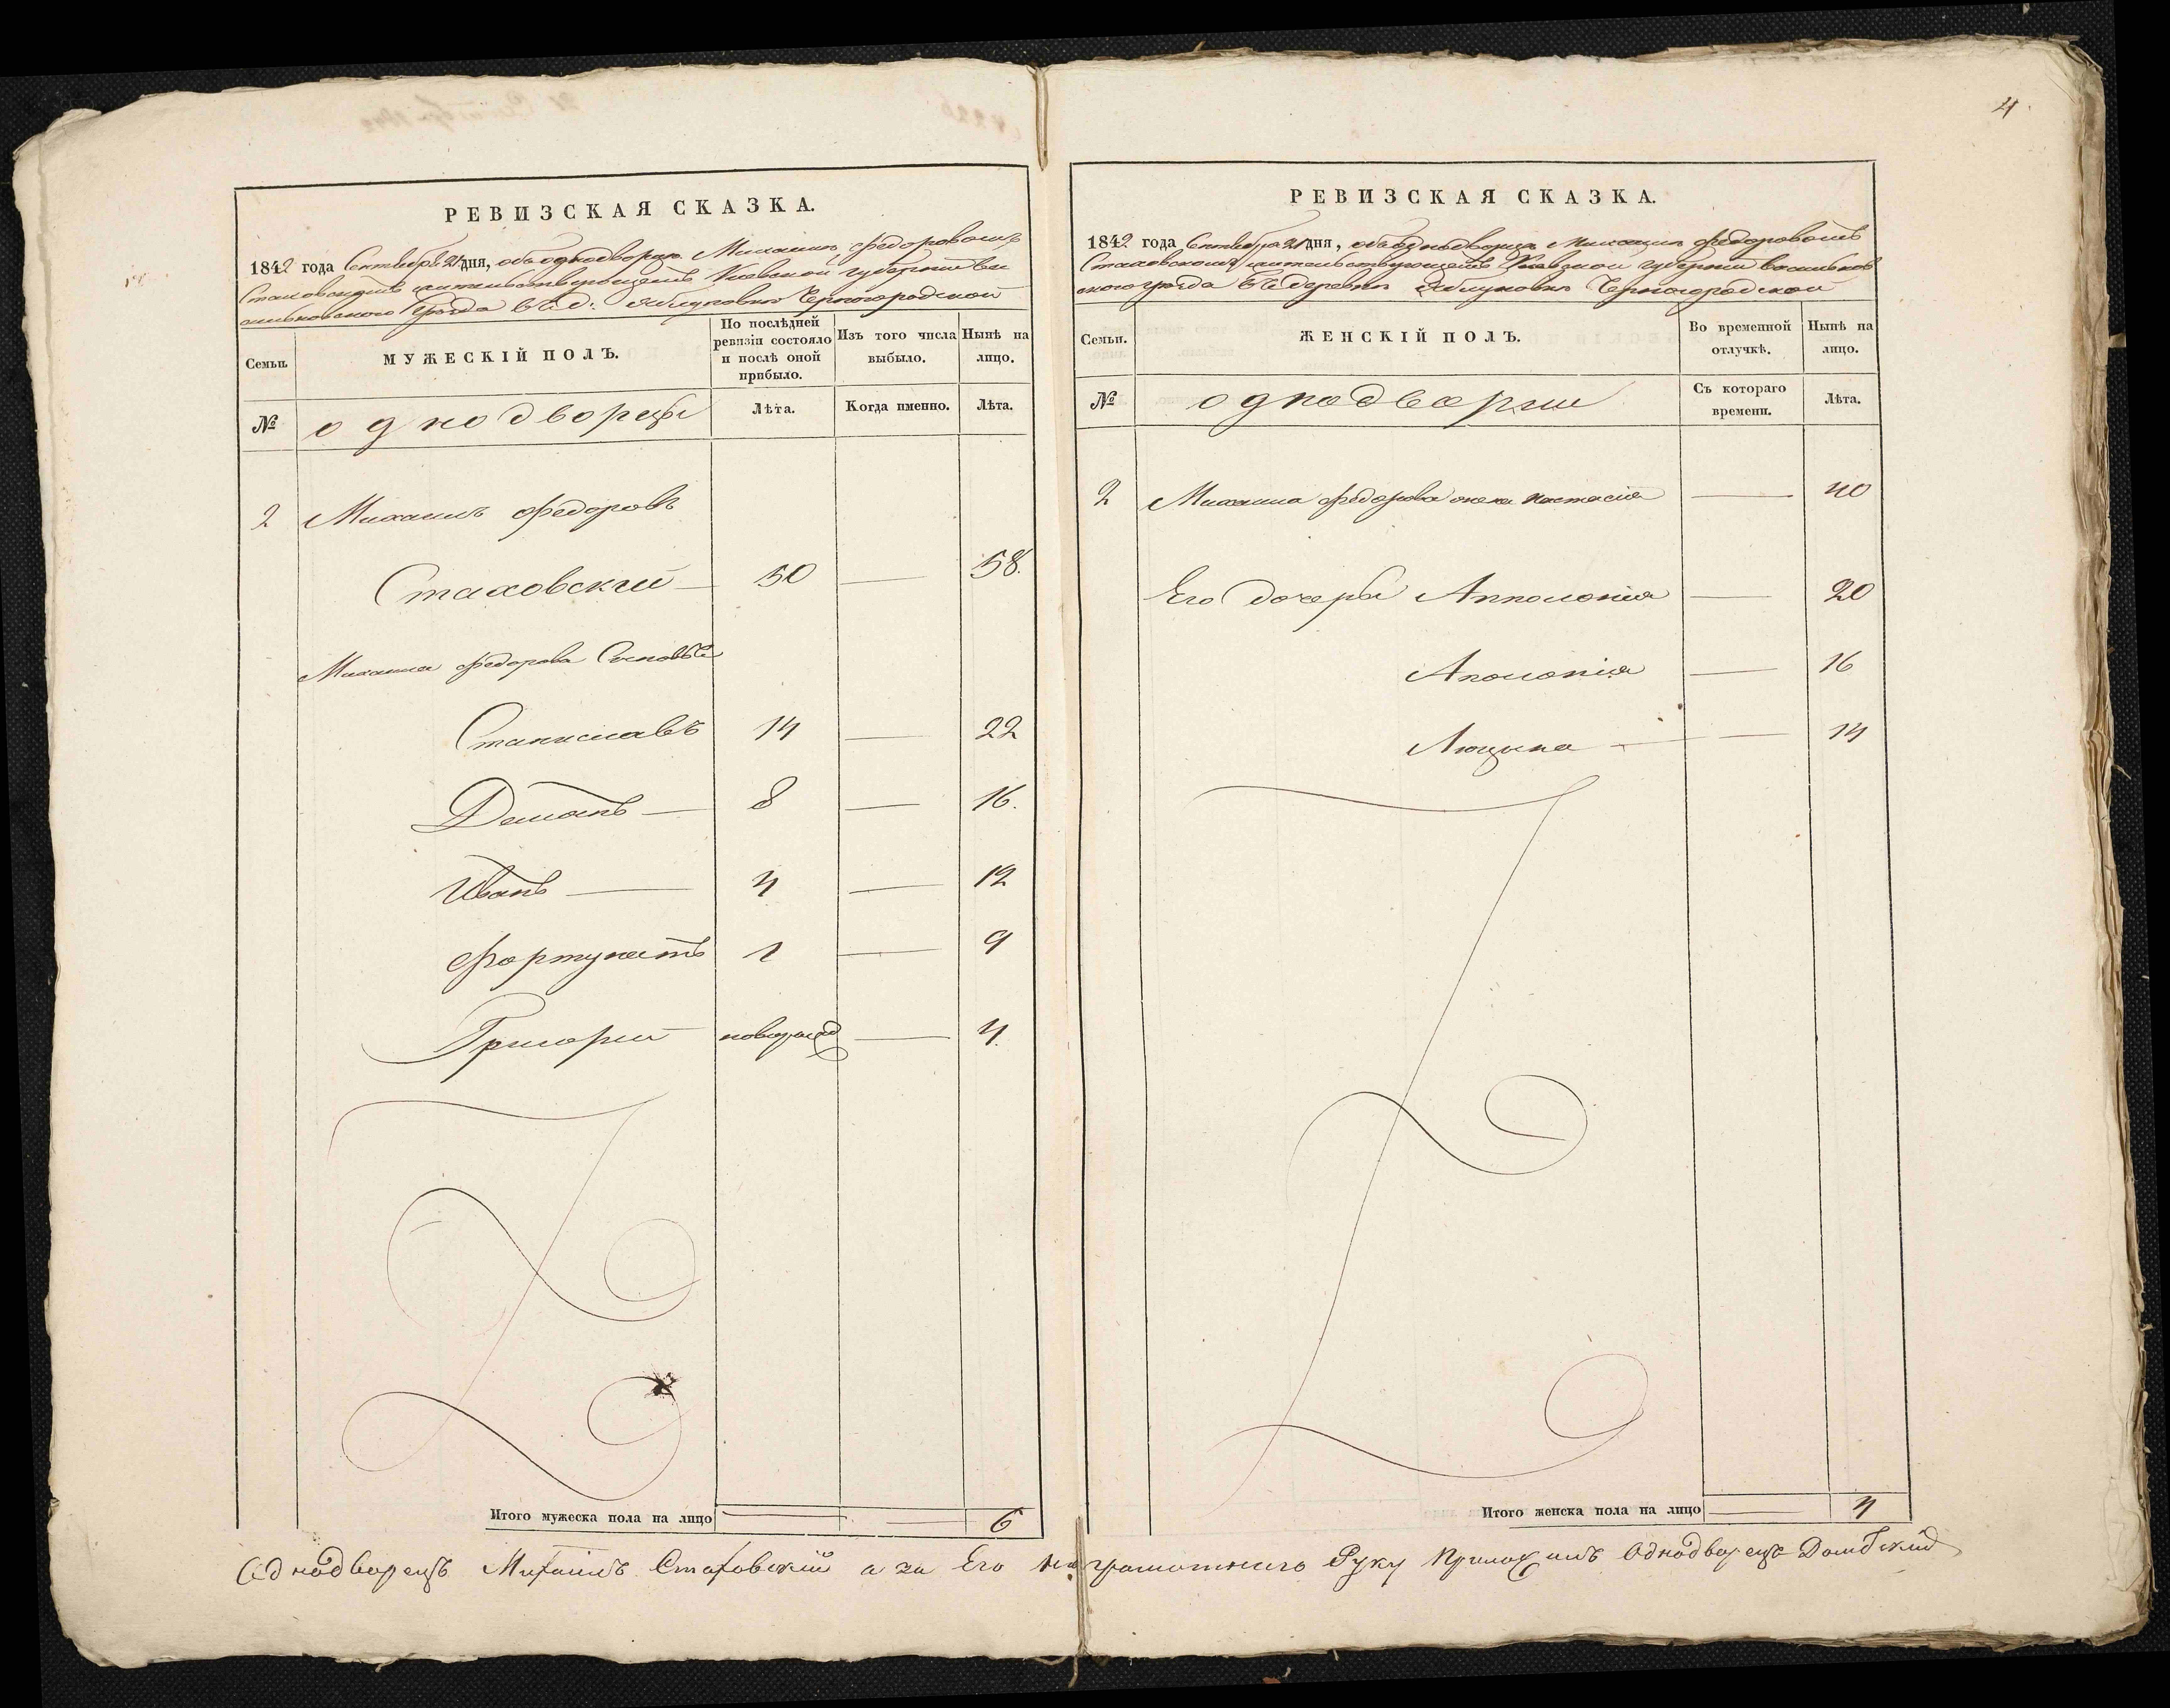 4
РЕВИЗСКАЯ СКАЗКА.
1842 года Сентября 21 дня, объ однодворце Михаиле Федоровомъ
Стаховскомъ жительствующемъ Киевской губернии Ва
сильковского уезда въ д: Яблуновке Черногородской
Семьи.
МУЖЕСКІЙ ПОЛЪ.
По послѣдней ревизіи состояло и послѣ оной прибыло.
Изъ того числа выбыло.
Нынѣ на лицо.
№
однодворцы
Лѣта.
Когда именно.
Лѣта.
2 Михаилъ Федоровъ
Стаховский — 50 — 58.
Михаила Федорова Сыновья
Станиславъ 14 — 22
Демьянъ — 8 — 16.
Иванъ — 4 — 12
Фортунатъ 1 — 9
Григорий новорожд — 4.
Итого мужеска пола на лицо — 6
РЕВИЗСКАЯ СКАЗКА.
1842 года Сентября 21 дня, объ однодворце Михаиле Федоровомъ
Стаховскомъ жительствующемъ Киевской губернии Васильков
ского уезда въ деревне Яблуновке Черногородской
Семьи.
ЖЕНСКІЙ ПОЛЪ.
Во временной отлучкѣ.
Нынѣ на лицо.
№
однодворки
Съ котораго времени.
Лѣта.
2 Михаила Федорова жена Настасія — 40
Его дочери Апполонія — 20
Аполонія — 16
Люцина — 14
Итого женска пола на лицо — 4
Однодворецъ Михаилъ Стаховский а за Его неграмотнего Руку Приложилъ Однодворецъ Домбский